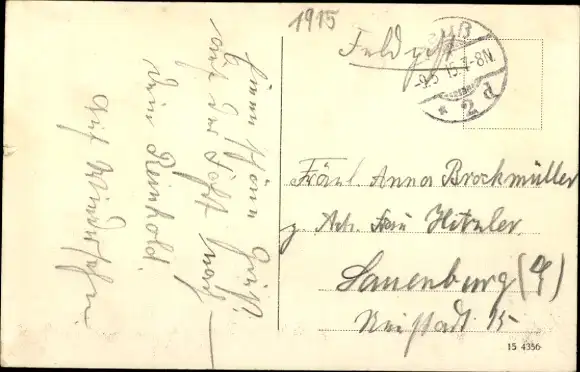 1915
Feldpost
-9.5.15.7-8N.
* 2 d
Einen schönen Gruß
auf der Fahrt nach
Dein Reinhold.
Auf Wiedersehn
Fräul. Anna Brockmüller
z. Adr. Frau Hitzler
Lauenburg (E)
Neustadt 15
15 4356